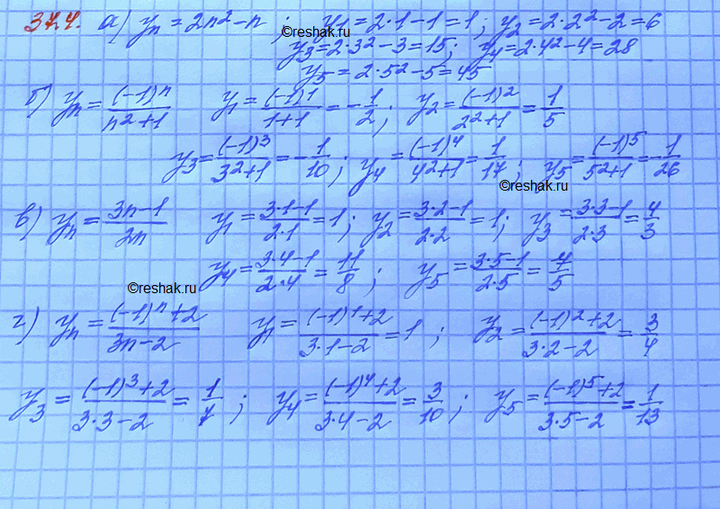 37.4. а) yₙ = 2n² − n ; y₁ = 2·1−1 = 1 ; y₂ = 2·2²−2 = 6
©reshak.ru
y₃ = 2·3²−3 = 15; y₄ = 2·4²−4 = 28
y₅ = 2·5²−5 = 45
б) yₙ = (−1)ⁿ/(n²+1) y₁ = (−1)¹/(1+1) = −1/2 ; y₂ = (−1)²/(2²+1) = 1/5
y₃ = (−1)³/(3²+1) = −1/10 ; y₄ = (−1)⁴/(4²+1) = 1/17 ; y₅ = (−1)⁵/(5²+1) = −1/26
©reshak.ru
в) yₙ = (3n−1)/(2n) y₁ = (3·1−1)/(2·1) = 1; y₂ = (3·2−1)/(2·2) = 1; y₃ = (3·3−1)/(2·3) = 4/3
y₄ = (3·4−1)/(2·4) = 11/8 ; y₅ = (3·5−1)/(2·5) = 7/5
©reshak.ru
г) yₙ = ((−1)ⁿ+2)/(3n−2) y₁ = ((−1)¹+2)/(3·1−2) = 1 ; y₂ = ((−1)²+2)/(3·2−2) = 3/4
y₃ = ((−1)³+2)/(3·3−2) = 1/7 ; y₄ = ((−1)⁴+2)/(3·4−2) = 3/10 ; y₅ = ((−1)⁵+2)/(3·5−2) = 1/13